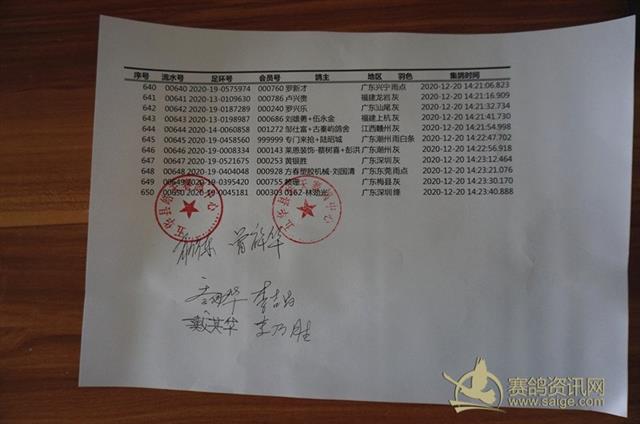 序号 流水号 足环号 会员号 鸽主 地区 羽色 集鸽时间
640 00640 2020-19-0575974 000760 罗新才 广东兴宁 雨点 2020-12-20 14:21:06.823
641 00641 2020-13-0109630 000786 卢兴贵 福建龙岩 灰 2020-12-20 14:21:16.909
642 00642 2020-19-0187289 000240 罗兴乐 广东汕尾 灰 2020-12-20 14:21:32.734
643 00643 2020-13-0198987 000686 刘雄勇+伍永金 福建上杭 灰 2020-12-20 14:21:41.730
644 00644 2020-14-0060858 001272 邹仕富+古秦屿鸽舍 江西赣州 灰 2020-12-20 14:21:54.998
645 00645 2020-19-0458560 999999 专门来抢+陆昭城 广东潮州 雨白条 2020-12-20 14:22:47.702
646 00646 2020-19-0008334 000143 莱恩装饰-蔡树喜+彭洪 广东潮州 灰 2020-12-20 14:22:56.918
647 00647 2020-19-0521675 000253 黄银胜 广东深圳 灰 2020-12-20 14:23:12.464
648 00648 2020-19-0404048 000928 方春塑胶机械-刘国清 广东东莞 雨点 2020-12-20 14:23:21.076
649 00649 2020-19-0395420 000755 广东梅县 灰 2020-12-20 14:23:30.170
650 00650 2020-19-0045181 000303 0162-林劲光 广东深圳 绛 2020-12-20 14:23:40.888
李乃胜
赛鸽资讯网
www.saige.com